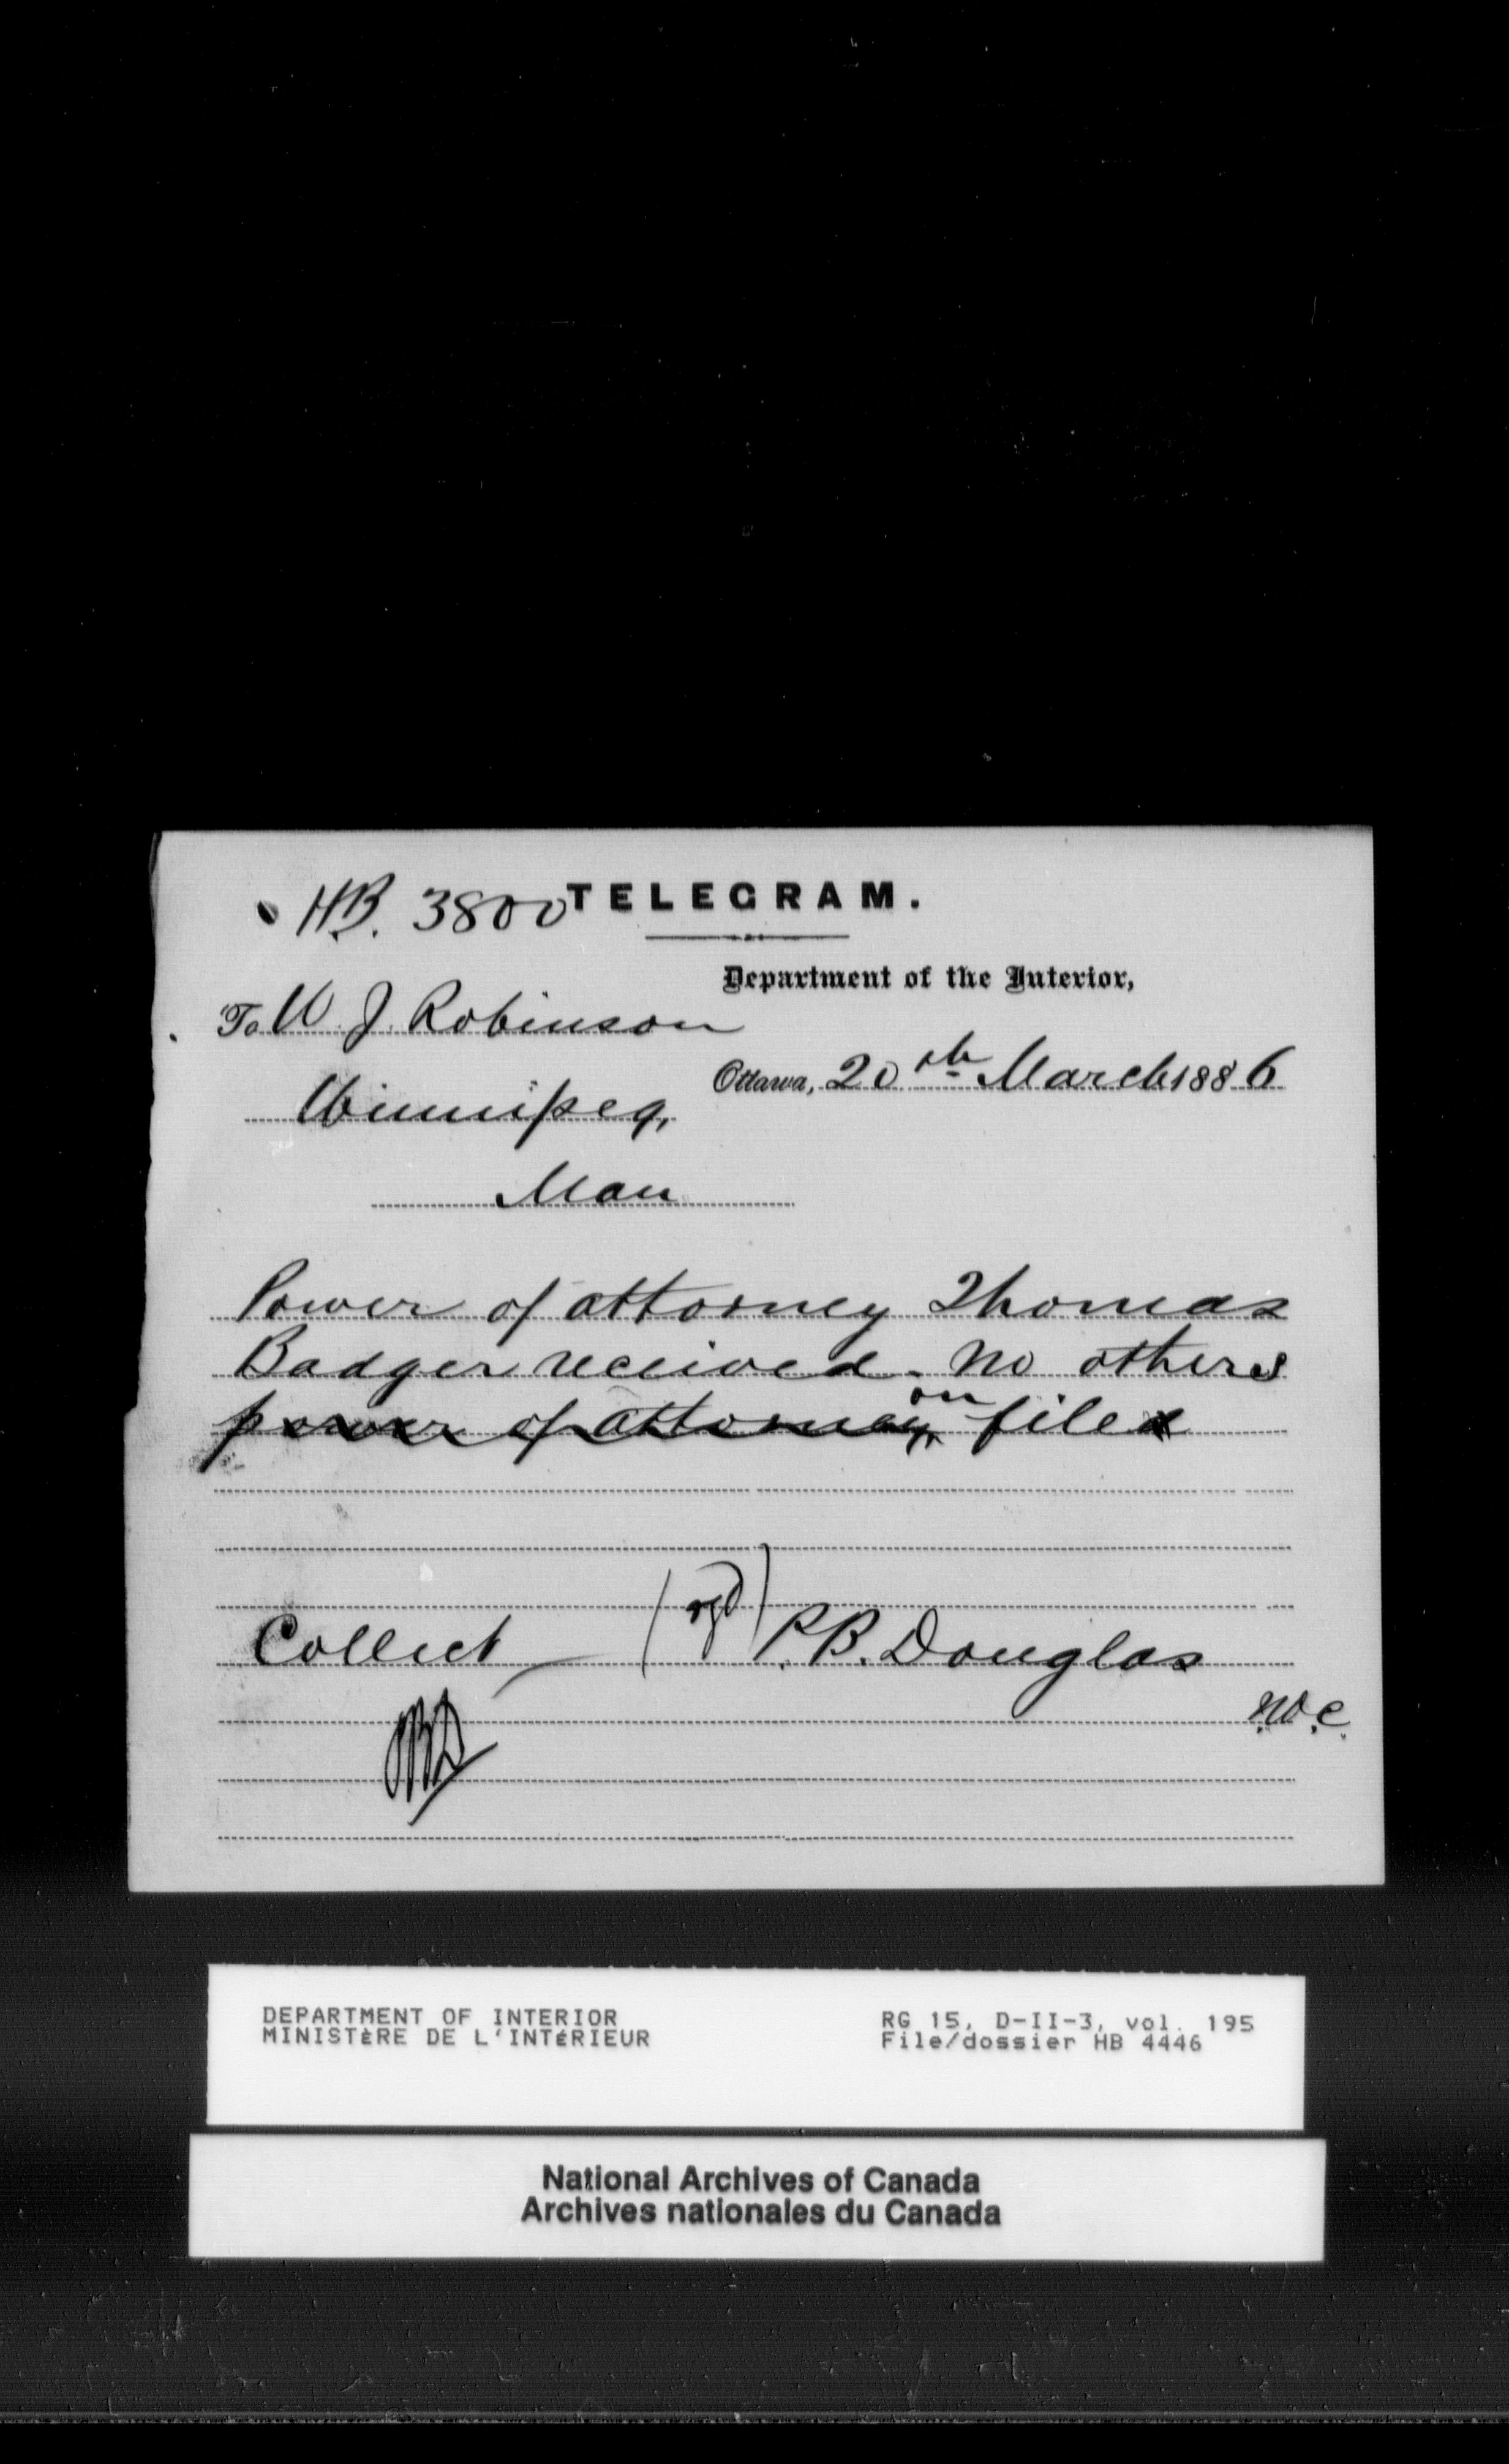 H.B. 3800 TELEGRAM.
Department of the Interior,
To W. J. Robinson
Ottawa, 20th March 1886
Winnipeg,
Man
Power of attorney Thomas
Badger received. No others
power of attorney on filed
Collect (sgd) P.B. Douglas
DEPARTMENT OF INTERIOR
MINISTÈRE DE L'INTÉRIEUR
RG 15, D-II-3, vol. 195
File/dossier HB 4446
National Archives of Canada
Archives nationales du Canada